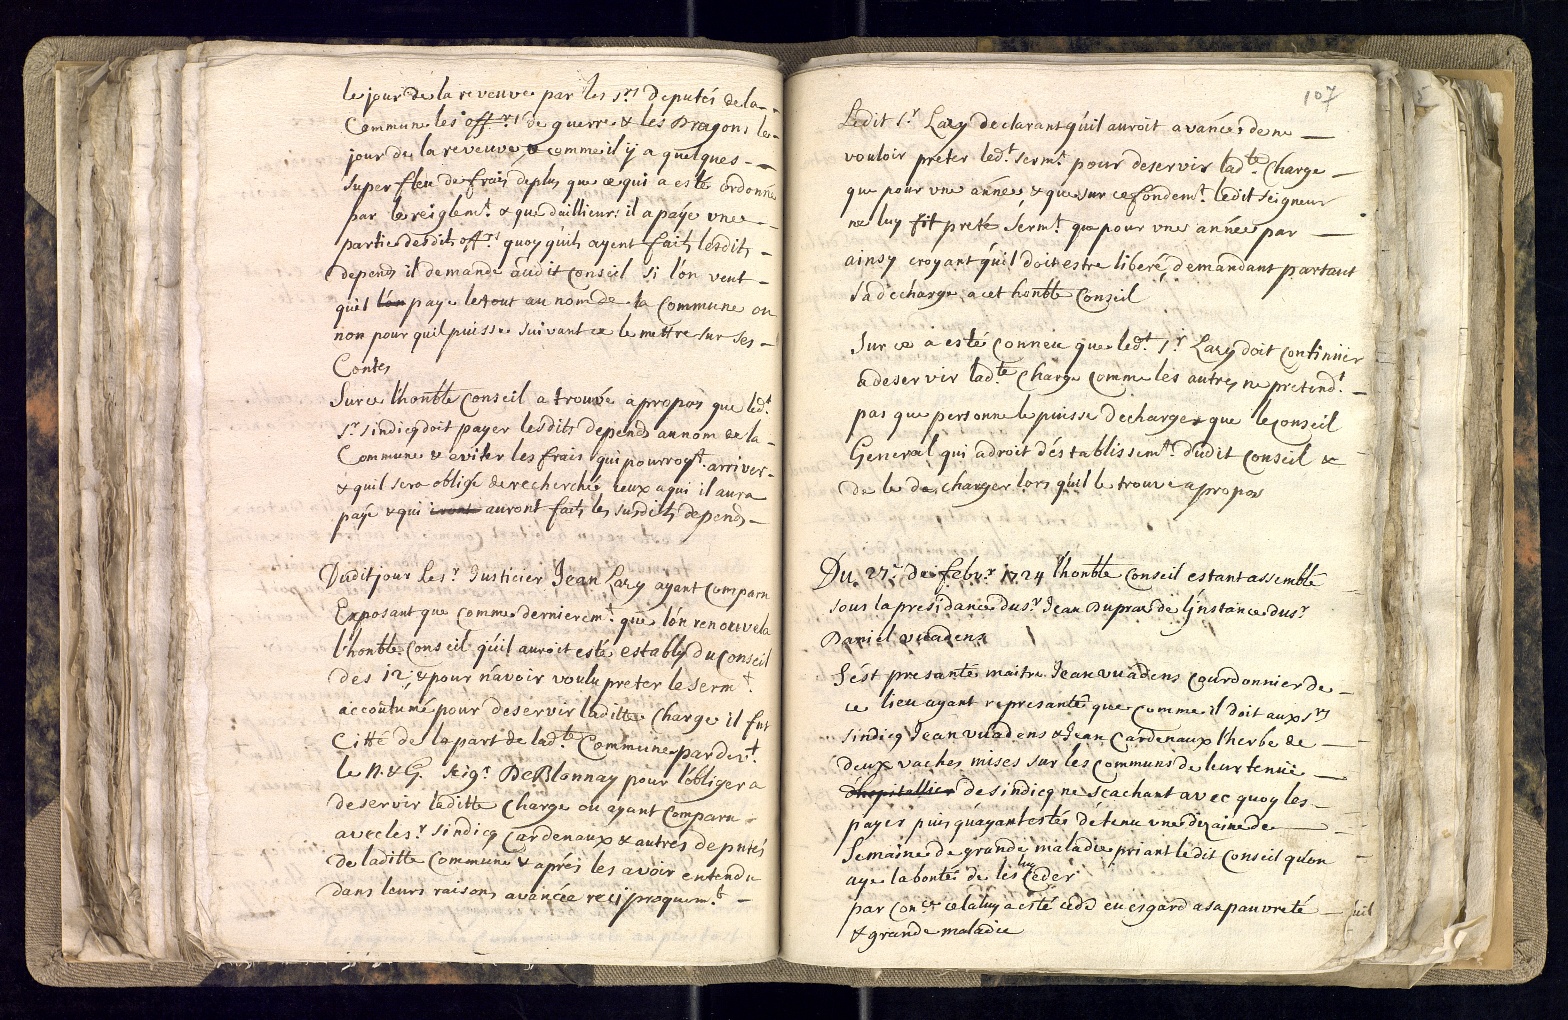 le jour de la reveuve par les Srs deputés de la
Commune les offrs de guerre & les Dragons le
jour de la reveuve & comme il y a quelques
superfleu de frais deplus que ce qui a esté ordonné
par le reiglemt. & que dailleurs il a paÿe vne
partie desdits offrs quoy quils ayent faits lesdits
depends il demande audit Conseil si l'on veut
quil l'on paye le tout au nom de la Commune ou
non pour quil puisse suivant ce le mettre sur ses
Contes
Surce l'honble Conseil a trouvé apropos que ledt
Sr sindicq doit payer lesdits depends au nom de la
Commune & eviter les frais qui pourroyt. arriver
& quil sera obligé de recherché ceux a qui il aura
payé & qui auront faits les susdits depends
Dudit jour le Sr Justicier Jean Lary ayant comparu
Exposant que comme dernieremt. que l'on renouvela
l'honble Conseil qu'il auroit esté establÿ du Conseil
des 12 & pour n'avoir voulu preter le sermt.
accoutumé pour deservir laditte Charge il fut
Citté de la part de ladte Commune pardevt
le N. & G. seigr DeBlonnay pour l'obliger a
deservir laditte Charge ou ayant comparu
avec le Sr sindicq Cardenaux & autres deputés
de laditte Commune & aprés les avoir entendu
dans leurs raisons avancée reciproquemt.
107
Ledit Sr Lary declarant qu'il auroit avancé de ne
vouloir preter ledt sermt pour deservir ladte Charge
que pour vne année, & que sur ce fondemt. ledit seigneur
ne luy fit preté sermt. que pour vne année par
ainsy croyant qu'il doit estre liberé, demandant partant
sa decharge a cet honble Conseil
Sur ce a esté conneu que ledt Sr Lary doit continüer
a deservir ladte Charge comme les autres ne pretendt
pas que personne le puisse decharger que le Conseil
General qui a droit d'éstablissemt dudit Conseil &
de le decharger lors qu'il le trouve apropos
Du 27e de febvr 1724 l'honble Conseil estant assemblé
sous la presidance du Sr Jean Dupraz de l'instance du Sr
Daniel vuadens
S'est presanté maitre Jean vuadens Courdonnier de
ce lieu ayant representé que comme il doit aux Srs
sindicq Jean vuadens & Jean Cardenaux l'herbe de
deux vaches mises sur les communs de leur tenüe
d'hopitallier de sindicq ne scachant avec quoy les
payer puis qu'ayant estés detenu vne dizaine de
semaine de grande maladie priant ledit Conseil qu'on
aye la bonté de les luy Ceder
par Conct cela luy a esté cedé eu esgard a sa pauvreté
& grande maladie